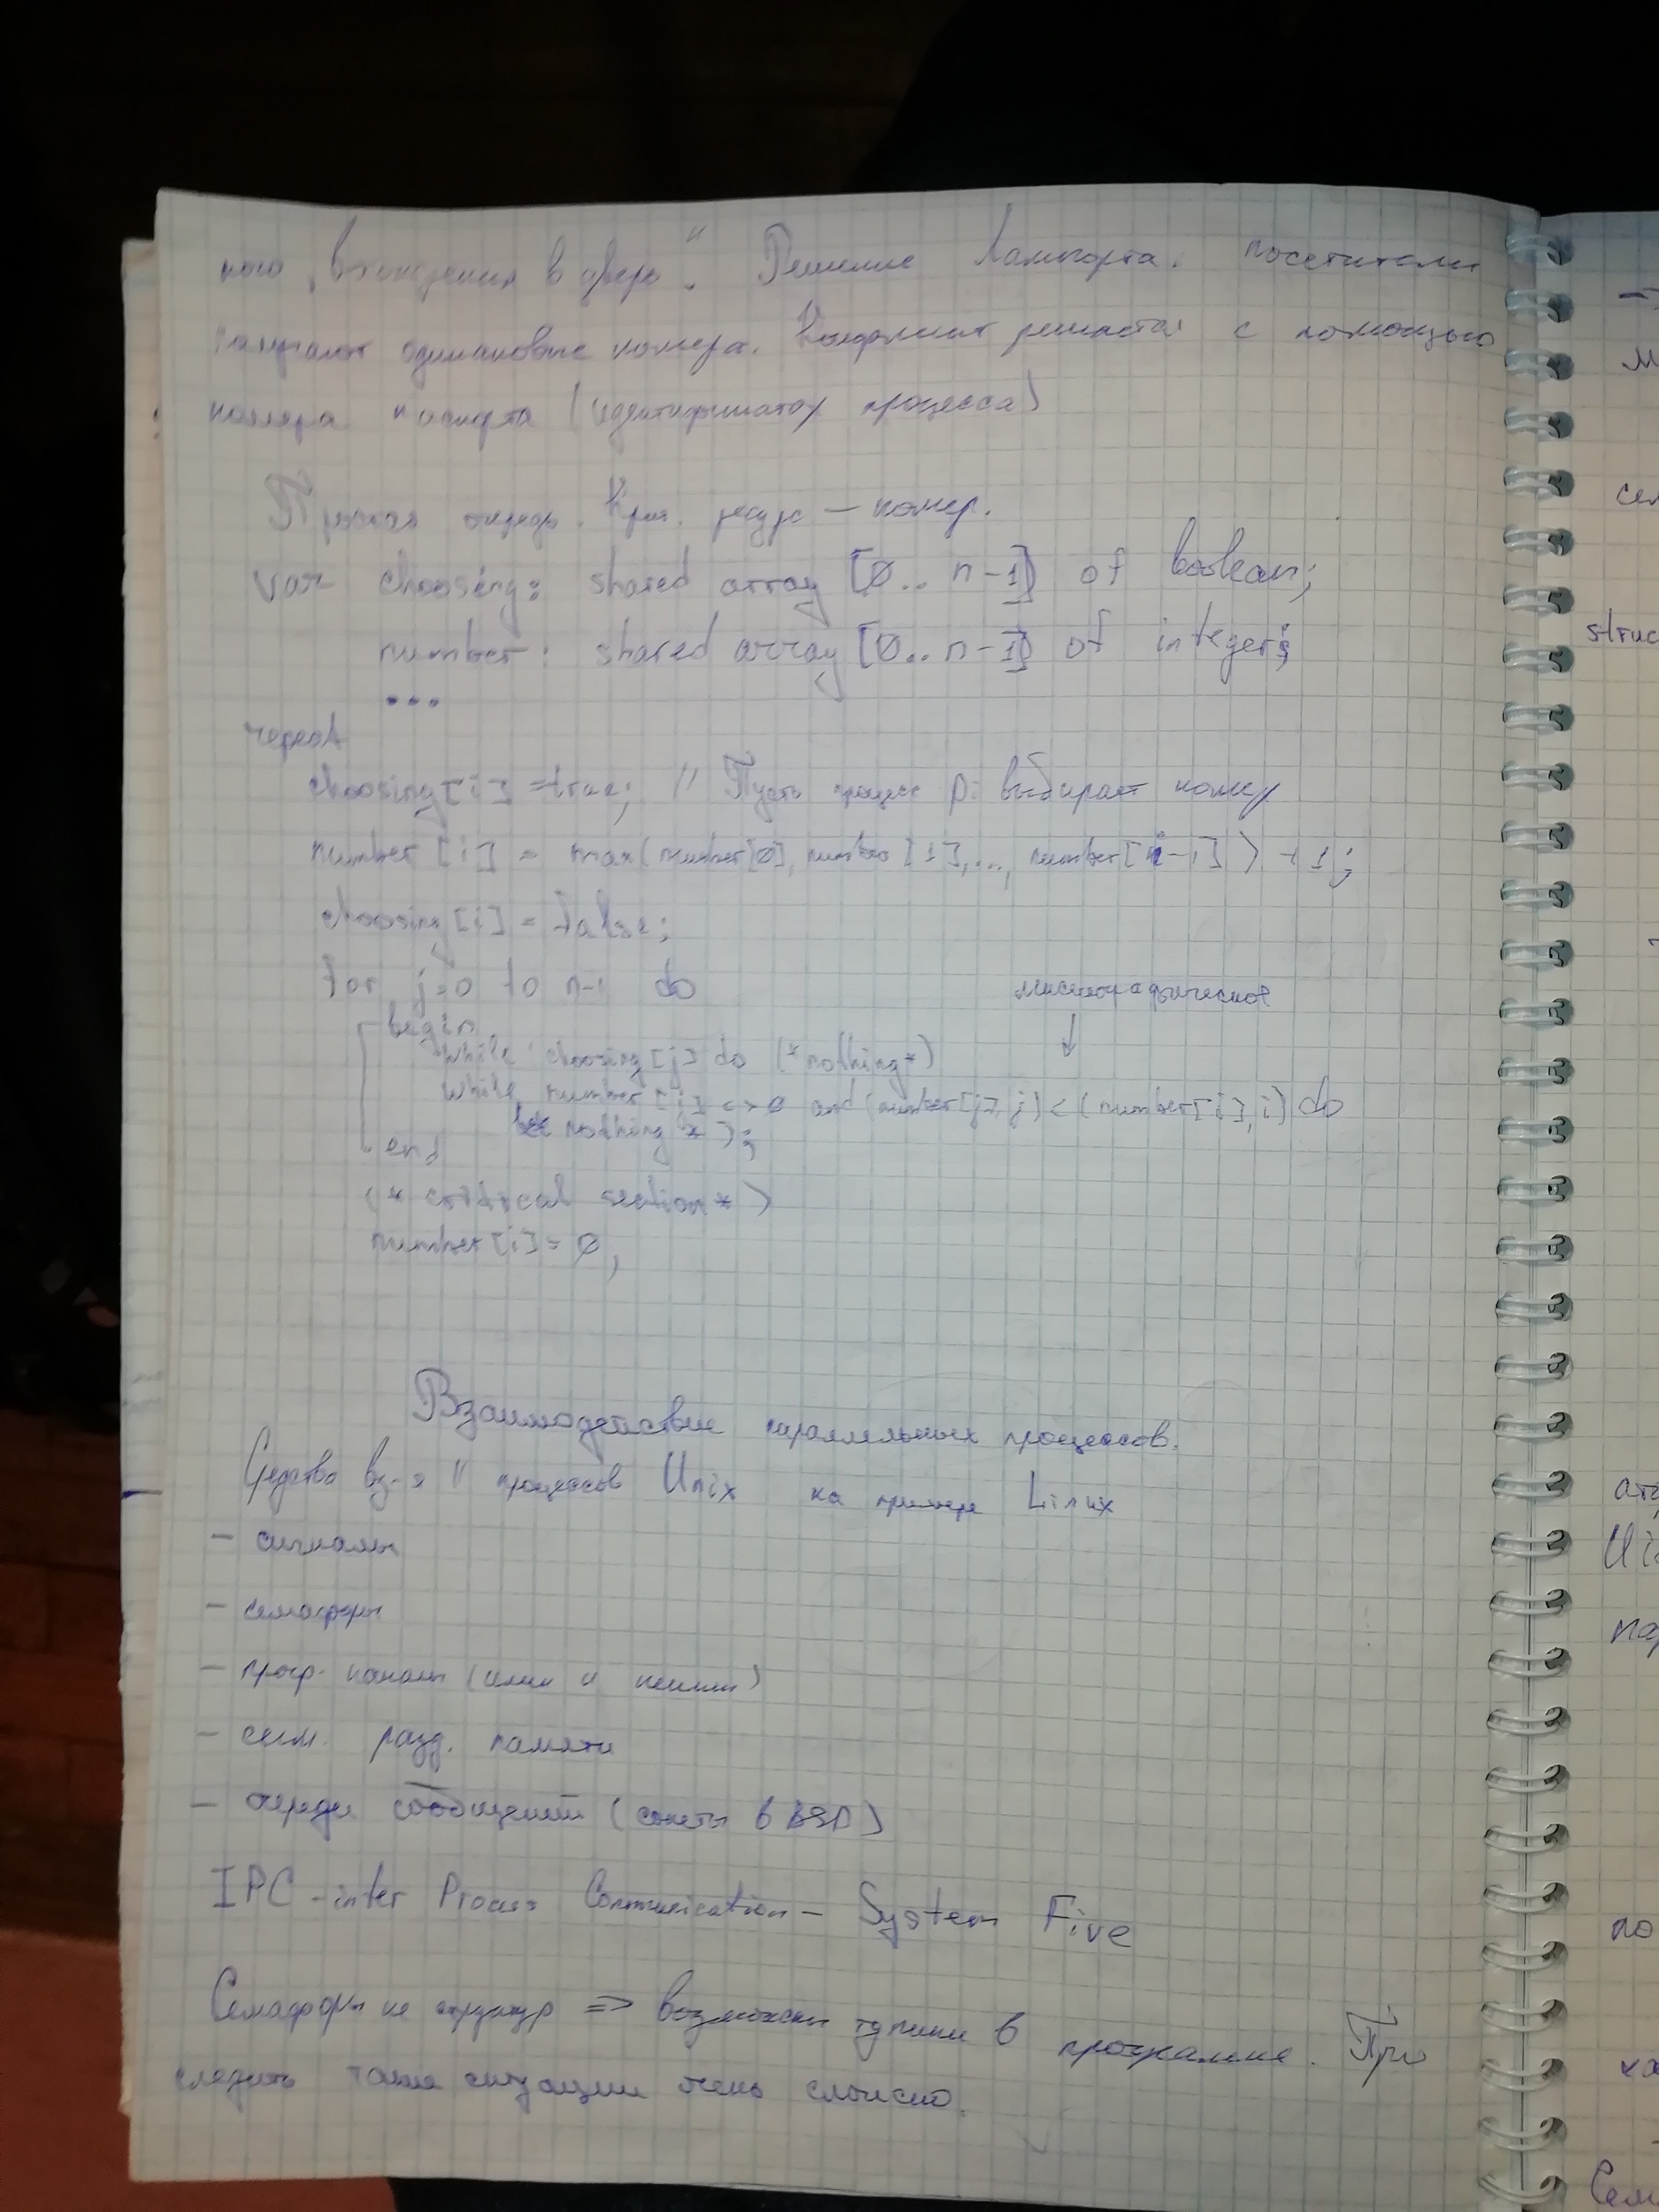 ного „вхождения в дверь". Решение Лампорта: посетители
получают одинаковые номера. Конфликт решается с помощью
номера паспорта (идентификатор процесса)
Простая очередь. Крит. ресурс — номер.
var choosing: shared array [0.. n-1] of boolean;
number: shared array [0.. n-1] of integer;
...
repeat
choosing[i] = true; // Пусть процесс Pi выбирает номер
number [i] = max(number[0], number [1], ..., number[n-1]) + 1;
choosing[i] = false;
for j=0 to n-1 do
лексикографическое
begin
while choosing[j] do (*nothing*)
while number[j] <> 0 and (number[j], j) < (number[i], i) do
nothing *);
end
(* critical section *)
number[i] = 0;
Взаимодействие параллельных процессов.
Средства вз-я // процессов Unix на примере Linux
- сигналы
- семафоры
- прогр. каналы (имен и неимен)
- сегм. разд. памяти
- очереди сообщений (сокеты в BSD)
IPC - inter Process Communication - System Five
Семафоры не структур => возможны тупики в программе. При
следить такие ситуации очень сложно.
-
м
сем
struc
ато
Ui
пар
по
ка
Сем